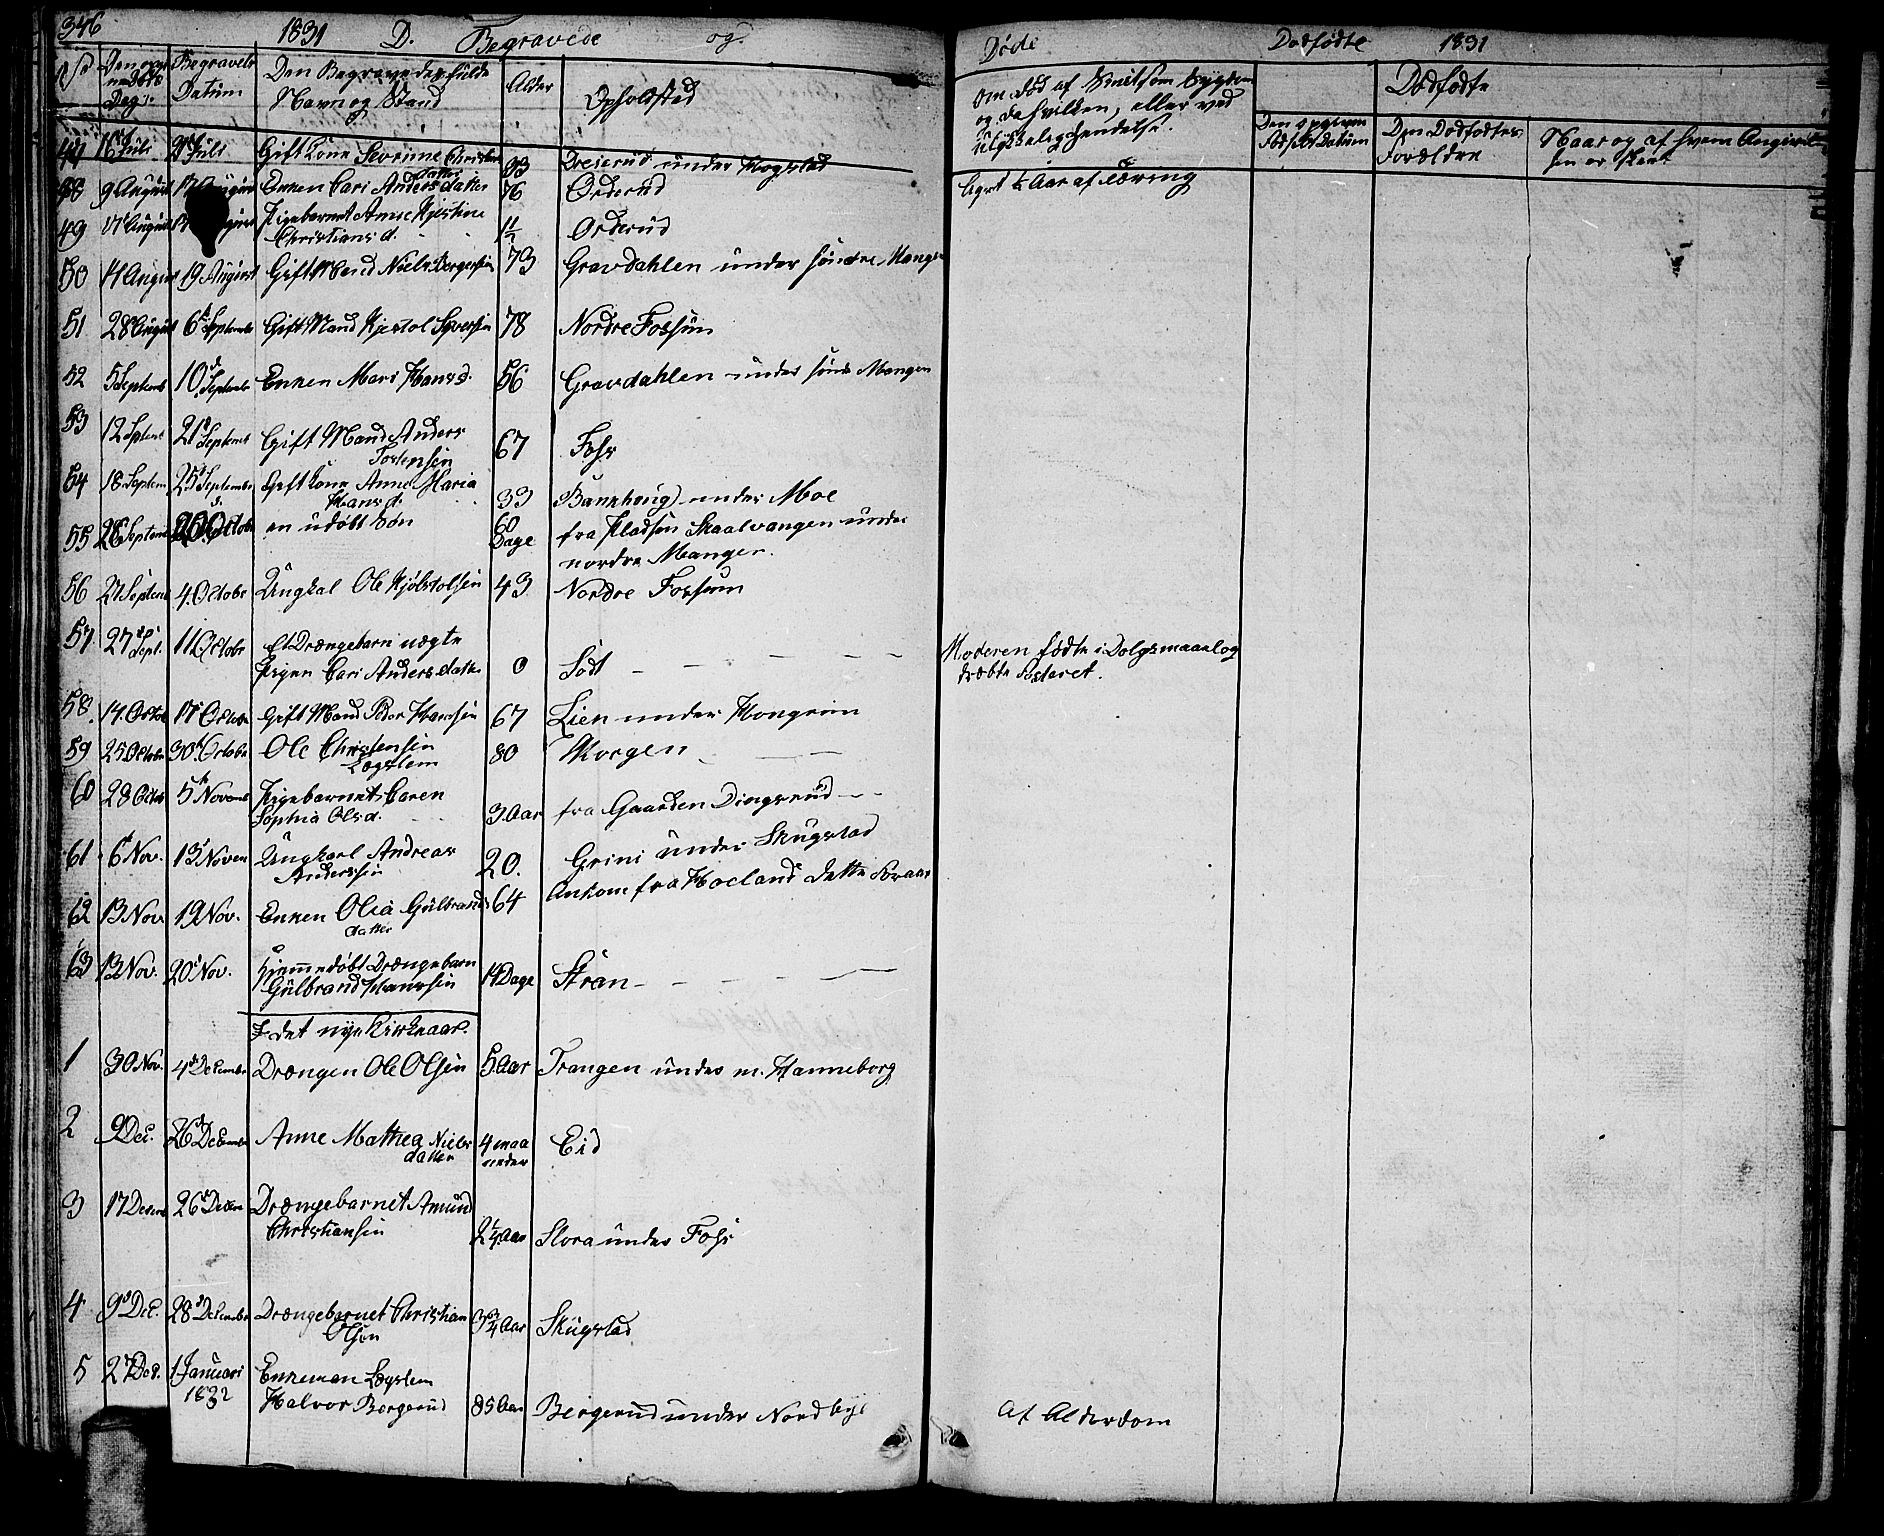 346 1831 D. Begravede og Døde Dødfødte 1831
Begravels Datum
Den Begravedes fulde Navn og Stand
Alder
Opholdsted
Om død af Smitsom Sygdom
og da hvilken, eller ved
ulykkelig Hendelse.
Dødfødte
Den Dødfødtes Forældre
Naar og af hvem Angivelsen er skeet
47 16 Juli Juli Gift Kone Severine Christens datter 33 Drejerud under Hogstad
48 9 August 17 August Enken Cari Andersdatter 76 Orderud ligget ½ Aar af Tæring
49 17 August Pigebarnet Anne Kjestine
Christians d. 1½ Orderud
50 14 August 19 August Gift Mand Niels Borgersen 73 Gravdahlen under søndre Mangen
51 28 August 6 Septembr Gift Mand Kjostol Syversen 78 Nordre Fossum
52 5 Septemb 10 Septemb Enken Mari Hansd. 56 Gravdahlen under søndr Mangen
53 12 Septemb 21 Septemb Gift Mand Anders
Tostensen 67 Foss
54 18 Septem 25 Septembr Gift Kone Anne Maria
Hansd. 33 Bankhoug under Moe
55 26 Septemb October en udøbt Søn 60 Dage fra Pladsen Skaalvangen under
nordre Mangen.
56 27 Septemb 4. Octobr Ungkal Ole Kjølstolsen 43 Nordre Fossum
57 27 Sept. 11 Octobr Et Drængebarn uægte
Pigen Cari Andersdatter 0 Sødt - - - - Moderen fødte i Dølgsmaal og
dræbte Fosteret.
58. 14. Octob 17 Octobr Gift Mand Peder Hansen 67 Lien under Hongrim
59 25 Octobr 30 Octobr Ole Christensen
Lægslem 80 Morgen - -
60 28 Octob 5 Novemb Pigebarnet Caren
Sophia Olsd. 3. Aar fra Gaarden Dingsrud - -
61 6 Nov. 13 Novem Ungkarl Andreas
Anderssen 20. Grini under Skugstad
62 13 Nov. 19 Nov. Enken Olia Gulbrands
datter 64 Ankom fra Høeland dette Foraar
63 13 Nov. 20 Nov. Hjemmedøbt Drængebarn
Gulbrand Hanssen 14 Dage Strøn - - - -
I det nye Kirkeaar.
1 30 Nov. 4 Decembr Drængen Ole Olsen 5. Aar Trangen under m. Hanneborg
2 9 Dec. 26 Decembr Anne Mathea Niels
datter 4 maaneder Eid
3 17 Decem 26 Decem Drængebarnet Amund
Christiansen 2¼ Aar Slora under Foss
4 9 Dec. 28 Decembr Drængebarnet Christian
Olsen 3¾ Aar Skugstad
5 27 Dec. 1 Januari
1832 Enkeman Lægslem
Halvor Bergerud 85 Aar Bergerud under Nordbye Af Alderdom